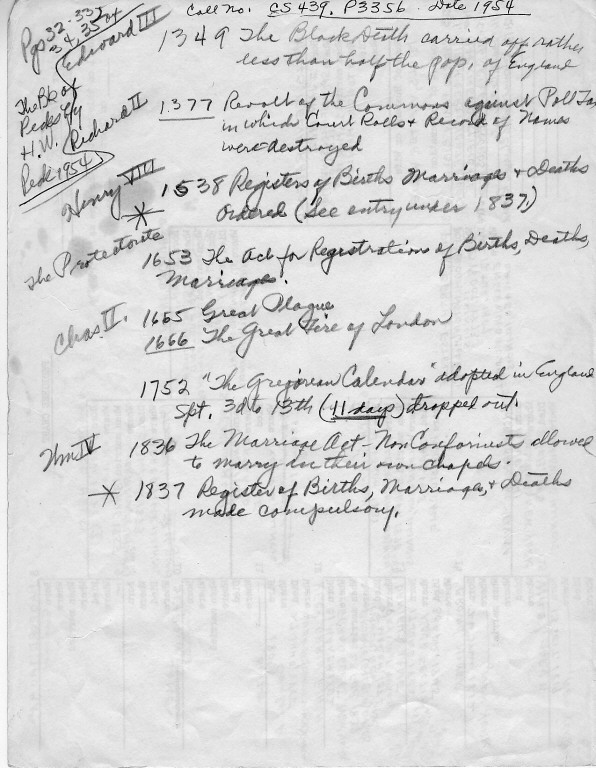 Call No. CS 439. P3356 Date 1954
Pgs 32-33,
34, 35
Edward III
1349 The Black Death carried off rather
less than half the pop. of England
The Bk of
Pedes by
H.W.
Pede 1954
Richard II
1377 Revolt of the Commons against Poll Tax
in which Court Rolls & Record of Names
were destroyed
Henry VIII
* 1538 Registers of Births Marriages & Deaths
ordered (See entry under 1837.)
The Protectorate
1653 The Act for Registrations of Births, Deaths,
Marriages.
Chas II.
1665 Great Plague
1666 The Great Fire of London
1752 "The Gregorian Calendar" adopted in England
Spt. 3d to 13th (11 days) dropped out.
Wm IV
1836 The Marriage Act - Non Conformists allowed
to marry in their own chapels.
* 1837 Register of Births, Marriages, & Deaths
made compulsory.